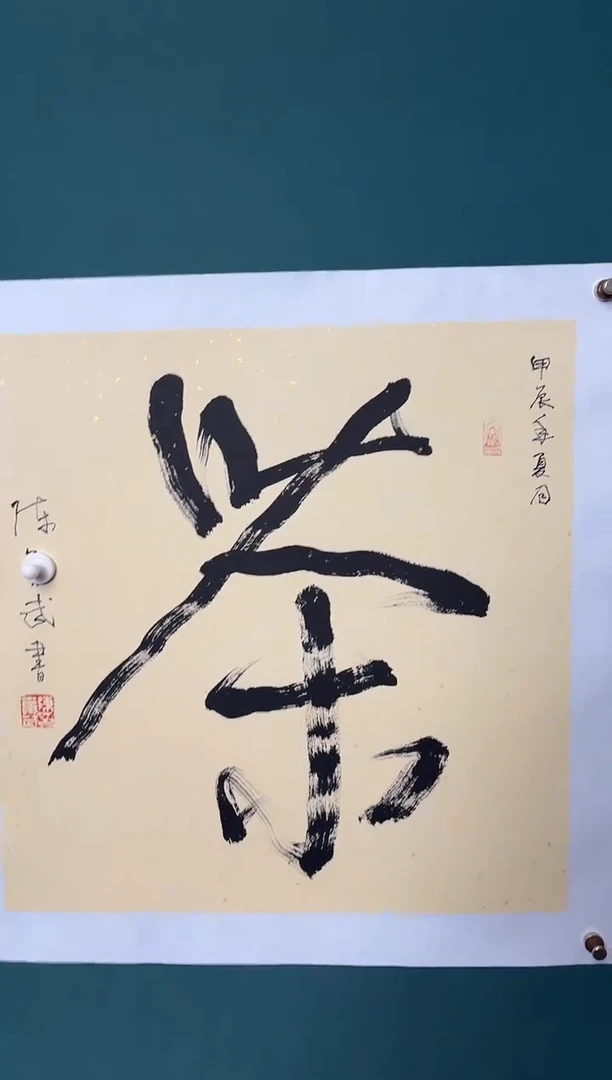 甲辰年夏月
茶
陈
武書